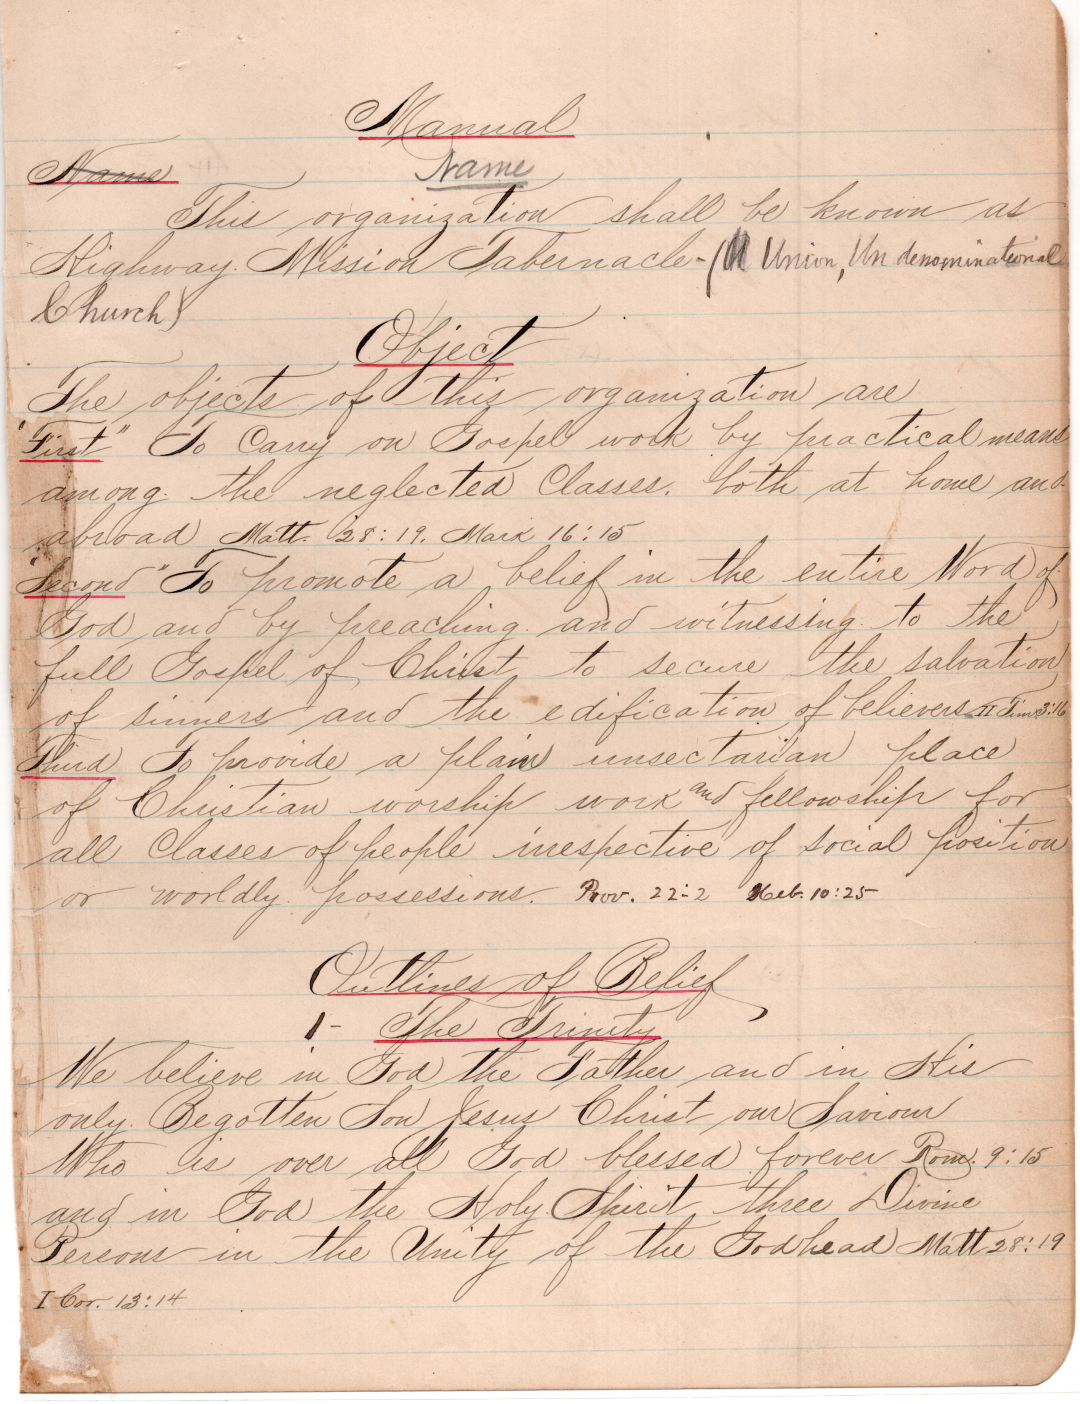 Manual
Name
Name
This organization shall be known as
Highway Mission Tabernacle - (A Union, Un denominational
Church)
Object
The objects of this organization are
"First" To Carry on Gospel work by practical means
among the neglected Classes. both at home and
abroad Matt. 28:19. Mark 16:15
"Second" To promote a belief in the entire Word of
God and by preaching and witnessing to the
full Gospel of Christ to secure the salvation
of sinners and the edification of believers II Tim 3:16
Third To provide a plain unsectarian place
of Christian worship work and fellowship for
all Classes of people irrespective of social position
or worldly possessions. Prov. 22:2 Heb. 10:25
Outlines of Belief
1- The Trinity
We believe in God the Father and in His
only Begotten Son Jesus Christ our Saviour
Who is over all God blessed forever Rom. 9:15
and in God the Holy Spirit three Divine
Persons in the Unity of the Godhead Matt 28:19
I Cor. 13:14